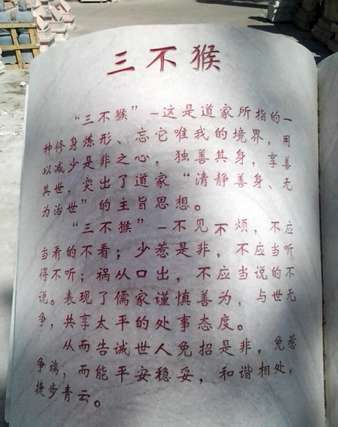 三不猴
“三不猴”-这是道家所指的一
种修身炼形、忘它唯我的境界，用
以减少是非之心，独善其身，享善
其世，突出了道家“清静善身、无
为治世”的主旨思想。
“三不猴”-不见不烦，不应
当看的不看；少惹是非，不应当听
得不听；祸从口出，不应当说的不
说。表现了儒家谨慎善为，与世无
争，共享太平的处事态度。
从而告诫世人免招是非，免惹
争端，而能平安稳妥，和谐相处，
捷步青云。